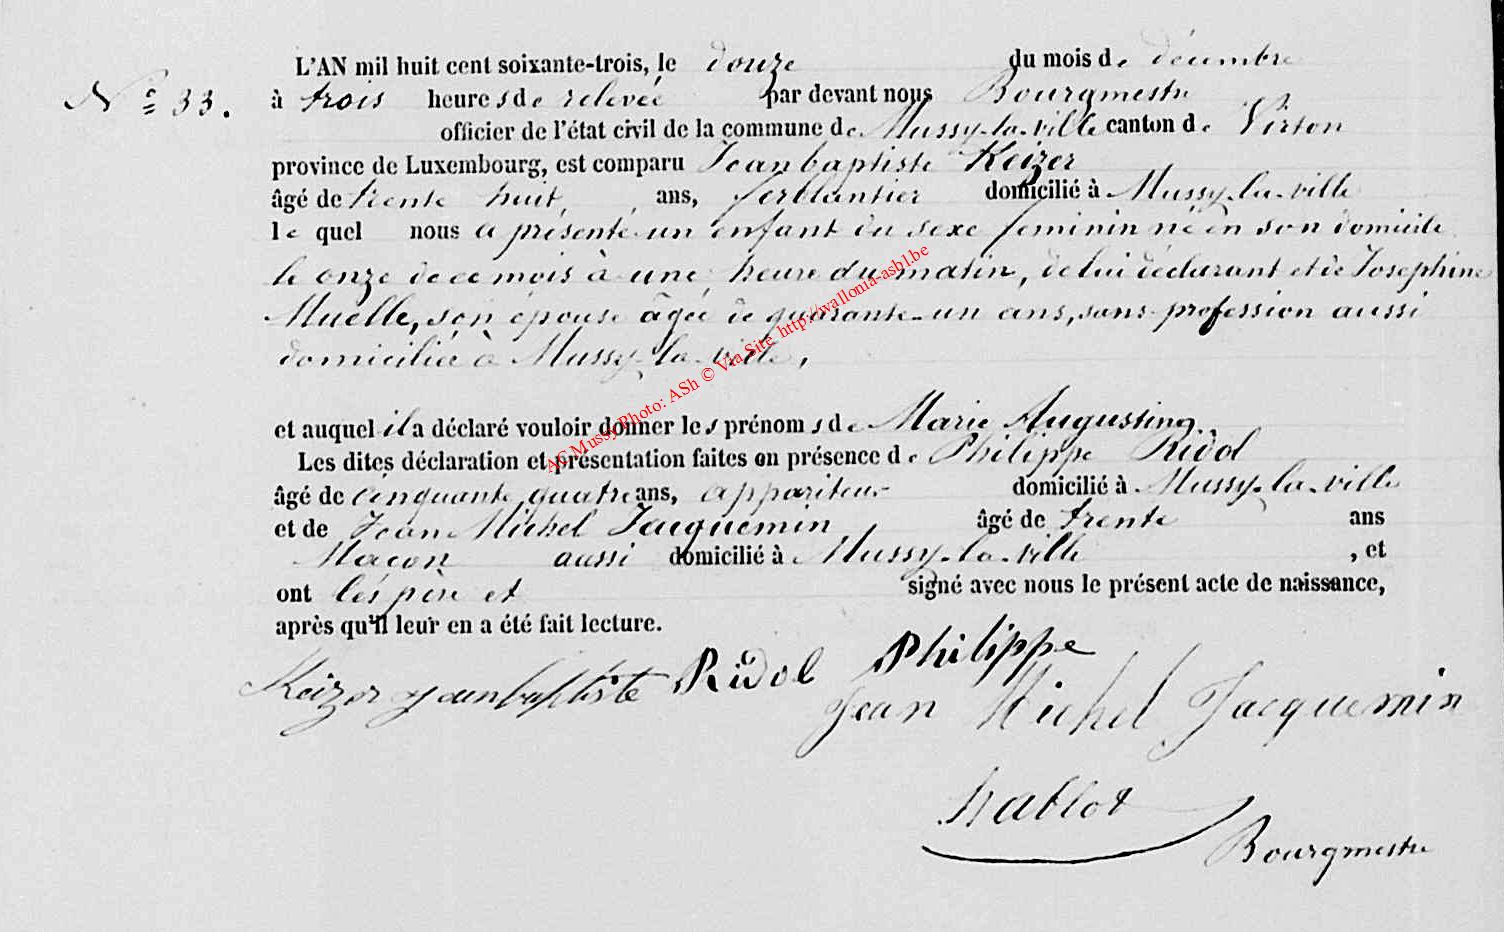 L'AN mil huit cent soixante-trois, le douze du mois de décembre
N° 33. à trois heures de relevée par devant nous Bourgmestre
officier de l'état civil de la commune de Mussy-la-ville canton de Virton
province de Luxembourg, est comparu Jean baptiste Keizer
âgé de trente huit, ans, ferblantier domicilié à Mussy-la-ville
le quel nous a présenté un enfant du sexe feminin né en son domicile
le onze de ce mois à une heure du matin, de lui déclarant et de Josephine
Muelle, son épouse âgée de quarante-un ans, sans profession aussi
domiciliée à Mussy-la-ville,
et auquel il a déclaré vouloir donner les prénoms de Marie Augustine.
Les dites déclaration et présentation faites en présence de Philippe Ridol
âgé de cinquante quatre ans, appariteur domicilié à Mussy-la-ville
et de Jean Michel Jacquemin âgé de trente ans
Maçon aussi domicilié à Mussy-la-ville , et
ont les père et signé avec nous le présent acte de naissance,
après qu'il leur en a été fait lecture.
Keizer jeanbaptiste Ridol Philippe
Jean Michel Jacquemin
hablot
Bourgmestre
AC Mussy Photo: ASh © Via Site http://wallonia-asbl.be